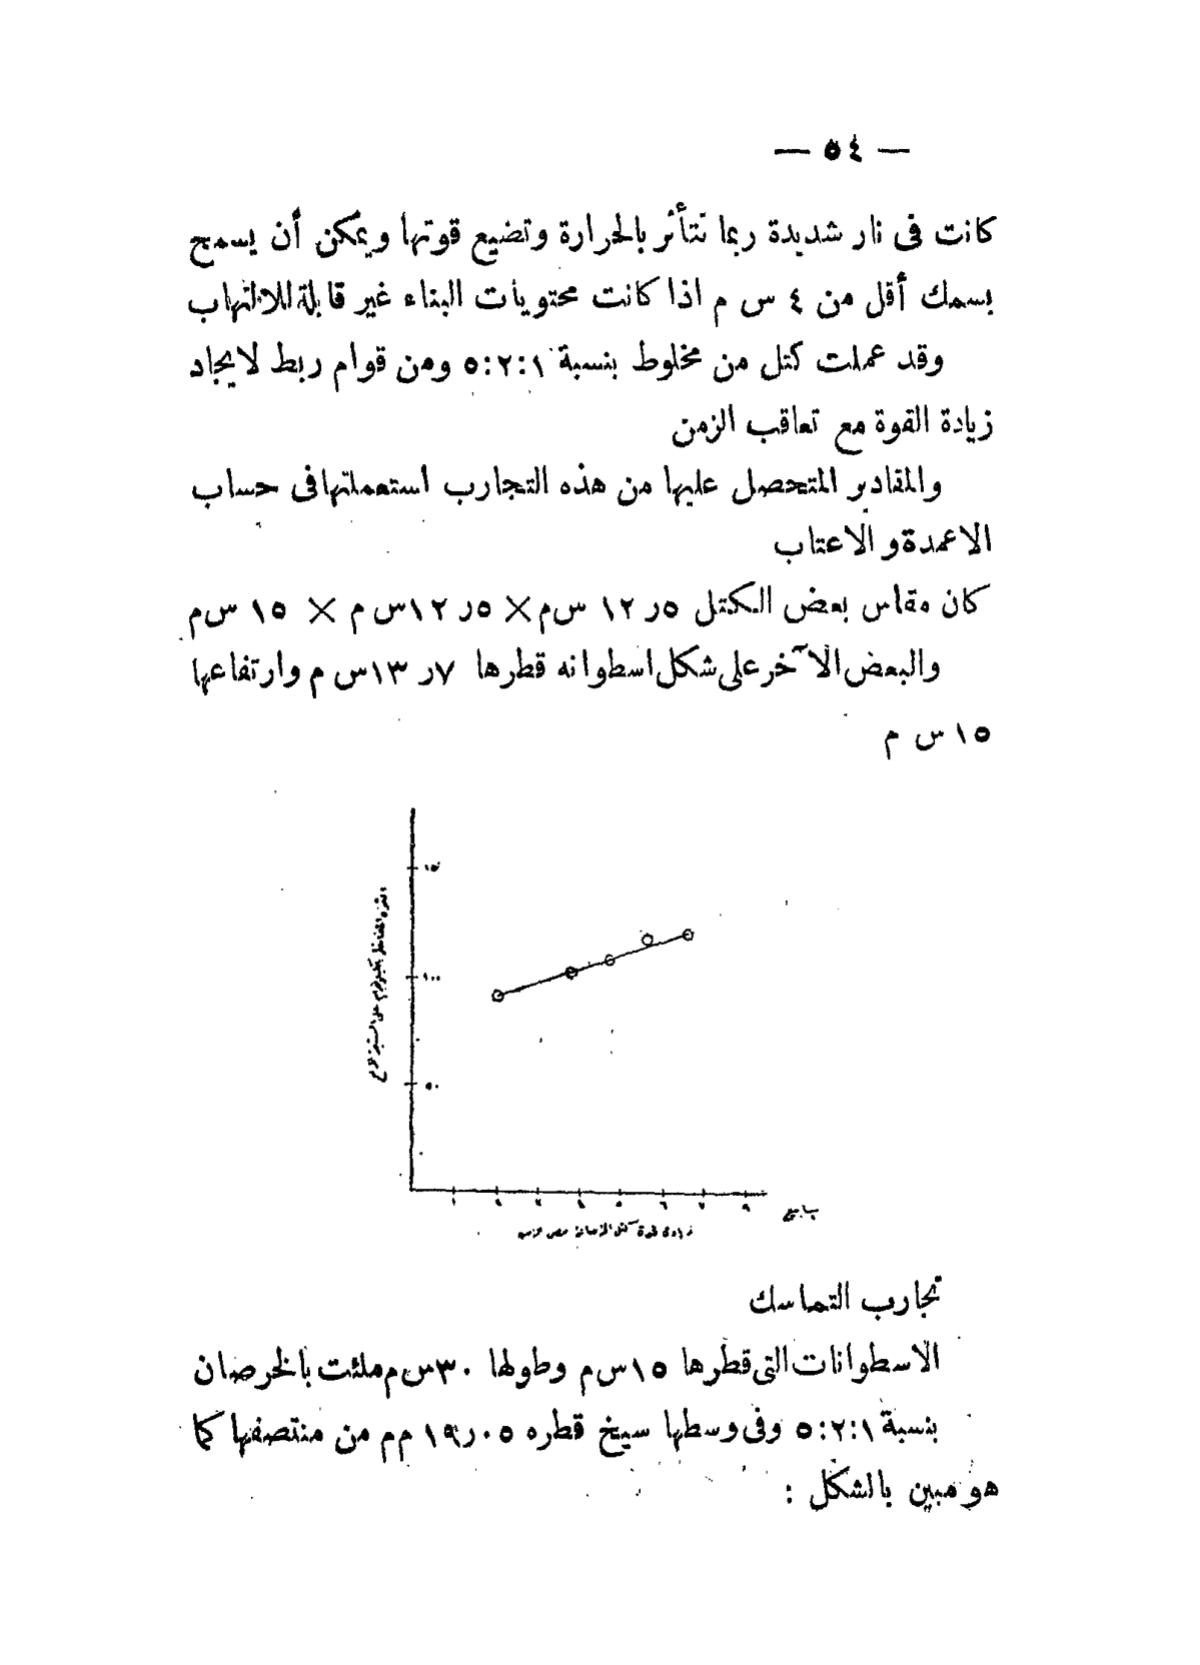 — ٥٤ —
كانت فى نار شديدة ربما تتأثر بالحرارة وتضيع قوتها ويمكن أن يسمح
بسمك أقل من ٤ س م اذا كانت محتويات البناء غير قابلة للالتهاب
وقد عملت كتل من مخلوط بنسبة ٥:٢:١ ومن قوام ربط لايجاد
زيادة القوة مع تعاقب الزمن
والمقادير المتحصل عليها من هذه التجارب استعملتها فى حساب
الاعمدة و الاعتاب
كان مقاس بعض الكتل ٥ر ١٢ س م × ٥ر ١٢ س م × ١٥ س م
والبعض الآخر على شكل اسطوانه قطرها ٧ر ١٣ س م وارتفاعها
١٥ س م
١٥٠
١٠٠
٥٠
١ ٢ ٣ ٤ ٥ ٦ ٧ ٩
اسابيع
زيادة قوة كتل الخرصانة
تجارب التماسك
الاسطوانات التى قطرها ١٥ س م وطولها ٣٠ س م ملئت بالخرصان
بنسبة ٥:٢:١ وفى وسطها سيخ قطره ١٩ر٠٥ م م من منتصفها كما
هو مبين بالشكل :